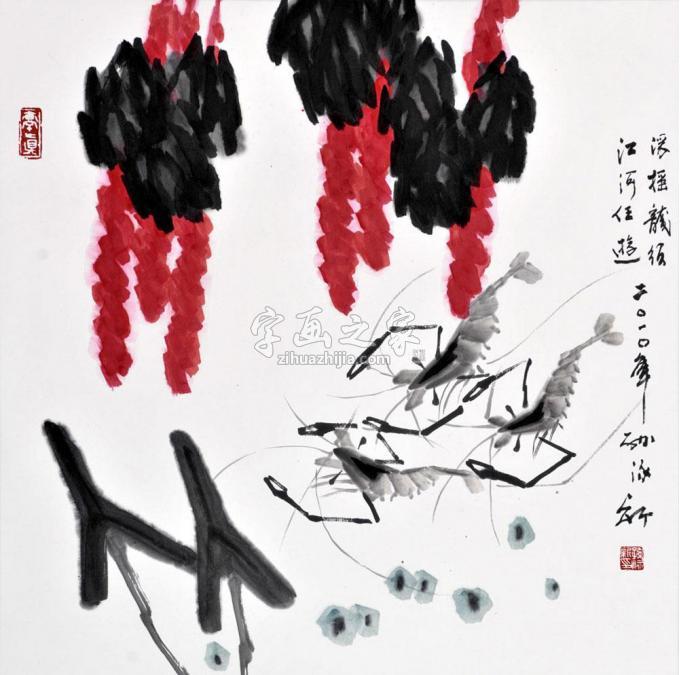 摇龍须
江河任遊 二〇一〇年 孙泳新
字画之家
zihuazhijia.com